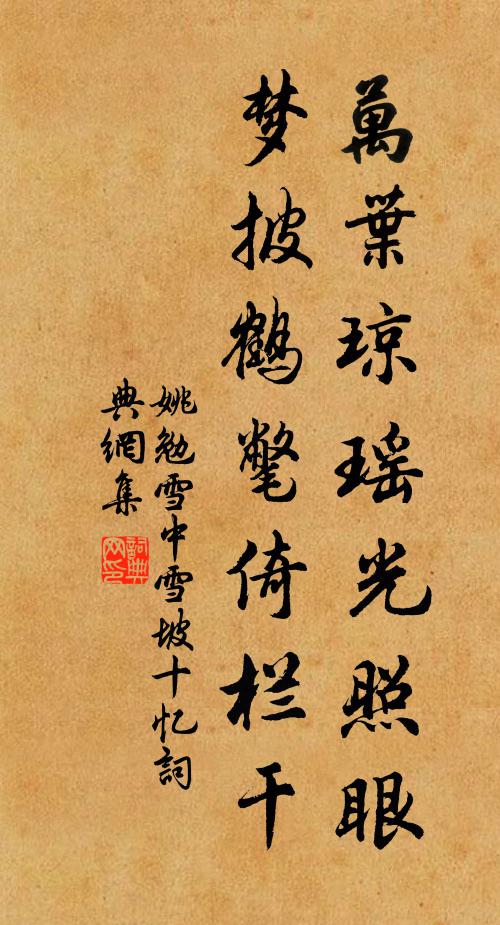 萬葉琼瑶光照眼
梦披鶴氅倚栏干
姚勉雪中雪坡十忆詞
典網集
詞典
网印